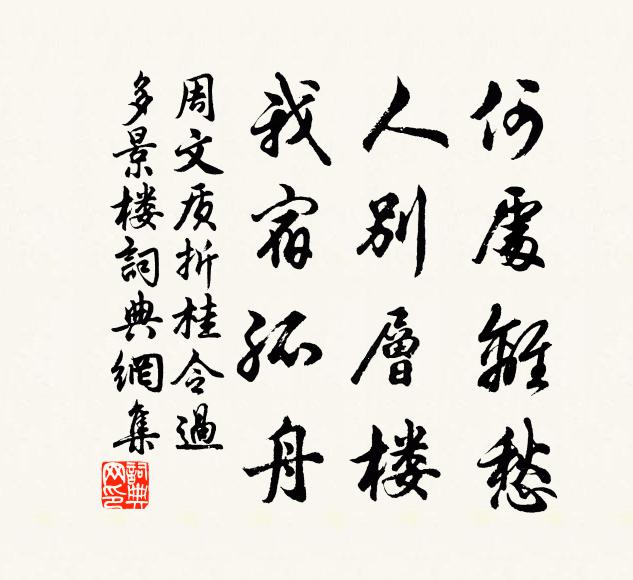 何處離愁
人別層楼
我宿孤舟
周文质折桂令過
多景楼詞典網集
詞典网印